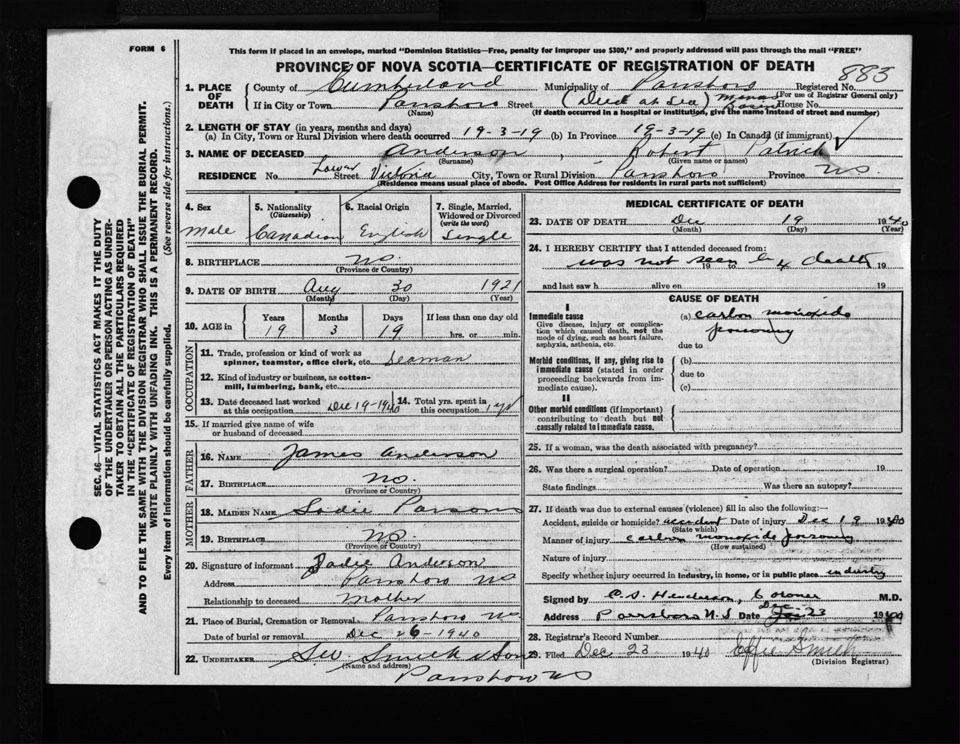 FORM 6
This form if placed in an envelope, marked "Dominion Statistics—Free, penalty for improper use $300," and properly addressed will pass through the mail "FREE"
PROVINCE OF NOVA SCOTIA—CERTIFICATE OF REGISTRATION OF DEATH
883
1. PLACE OF DEATH
County of Cumberland Municipality of Parrsboro Registered No.
(For use of Registrar General only)
If in City or Town Parrsboro Street (Died at Sea) Minas Basin House No.
(Name) (If death occurred in a hospital or institution, give the name instead of street and number)
2. LENGTH OF STAY (in years, months and days)
(a) In City, Town or Rural Division where death occurred 19-3-19 (b) In Province 19-3-19 (c) In Canada (if immigrant)
3. NAME OF DECEASED Anderson, Robert Patrick
(Surname) (Given name or names)
RESIDENCE No. Street Lower Victoria City, Town or Rural Division Parrsboro Province N.S.
(Residence means usual place of abode. Post Office Address for residents in rural parts not sufficient)
4. Sex
Male
5. Nationality (Citizenship)
Canadian
6. Racial Origin
English
7. Single, Married, Widowed or Divorced (write the word)
Single
8. BIRTHPLACE N.S.
(Province or Country)
9. DATE OF BIRTH Aug 30 1921
(Month) (Day) (Year)
10. AGE in
Years Months Days If less than one day old
19 3 19 hrs. or min.
OCCUPATION
11. Trade, profession or kind of work as spinner, teamster, office clerk, etc. Seaman
12. Kind of industry or business, as cotton-mill, lumbering, bank, etc.
13. Date deceased last worked at this occupation Dec 19-1940
14. Total yrs. spent in this occupation 1 yr
15. If married give name of wife or husband of deceased
FATHER
16. NAME James Anderson
17. BIRTHPLACE N.S.
(Province or Country)
MOTHER
18. MAIDEN NAME Sadie Parsons
19. BIRTHPLACE N.S.
(Province or Country)
20. Signature of informant Sadie Anderson
Address Parrsboro N.S.
Relationship to deceased Mother
21. Place of Burial, Cremation or Removal Parrsboro N.S.
Date of burial or removal Dec 26-1940
22. UNDERTAKER Smith & Son
(Name and address)
Parrsboro N.S.
MEDICAL CERTIFICATE OF DEATH
23. DATE OF DEATH Dec 19 1940
(Month) (Day) (Year)
24. I HEREBY CERTIFY that I attended deceased from:
was not seen by death
19 to 19
and last saw h alive on 19
CAUSE OF DEATH
I
Immediate cause
Give disease, injury or complication which caused death, not the mode of dying, such as heart failure, asphyxia, asthenia, etc.
(a) carbon monoxide
poisoning
due to
Morbid conditions, if any, giving rise to immediate cause (stated in order proceeding backwards from immediate cause).
(b)
due to
(c)
II
Other morbid conditions (if important) contributing to death but not causally related to immediate cause.
25. If a woman, was the death associated with pregnancy?
26. Was there a surgical operation? Date of operation 19
State findings Was there an autopsy?
27. If death was due to external causes (violence) fill in also the following:
Accident, suicide or homicide? accident Date of injury Dec 19 1940
(State which)
Manner of injury carbon monoxide poisoning
(How sustained)
Nature of injury
Specify whether injury occurred in industry, in home, or in public place industry
Signed by C.S. Henderson, Coroner M.D.
Address Parrsboro N.S Date Dec 23 1940
28. Registrar's Record Number
29. Filed Dec 23 1940 Effie Smith
(Division Registrar)
SEC. 46—VITAL STATISTICS ACT MAKES IT THE DUTY
OF THE UNDERTAKER OR PERSON ACTING AS UNDER-
TAKER TO OBTAIN ALL THE PARTICULARS REQUIRED
IN THE "CERTIFICATE OF REGISTRATION OF DEATH"
AND TO FILE THE SAME WITH THE DIVISION REGISTRAR WHO SHALL ISSUE THE BURIAL PERMIT.
WRITE PLAINLY WITH UNFADING INK. THIS IS A PERMANENT RECORD.
Every item of information should be carefully supplied. (See reverse side for instructions.)